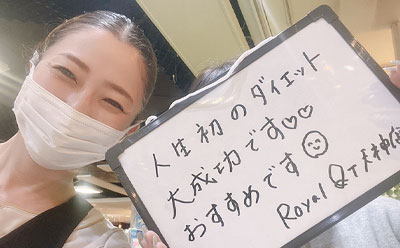 人生初のダイエット
大成功です♡♡
おすすめです
Royal